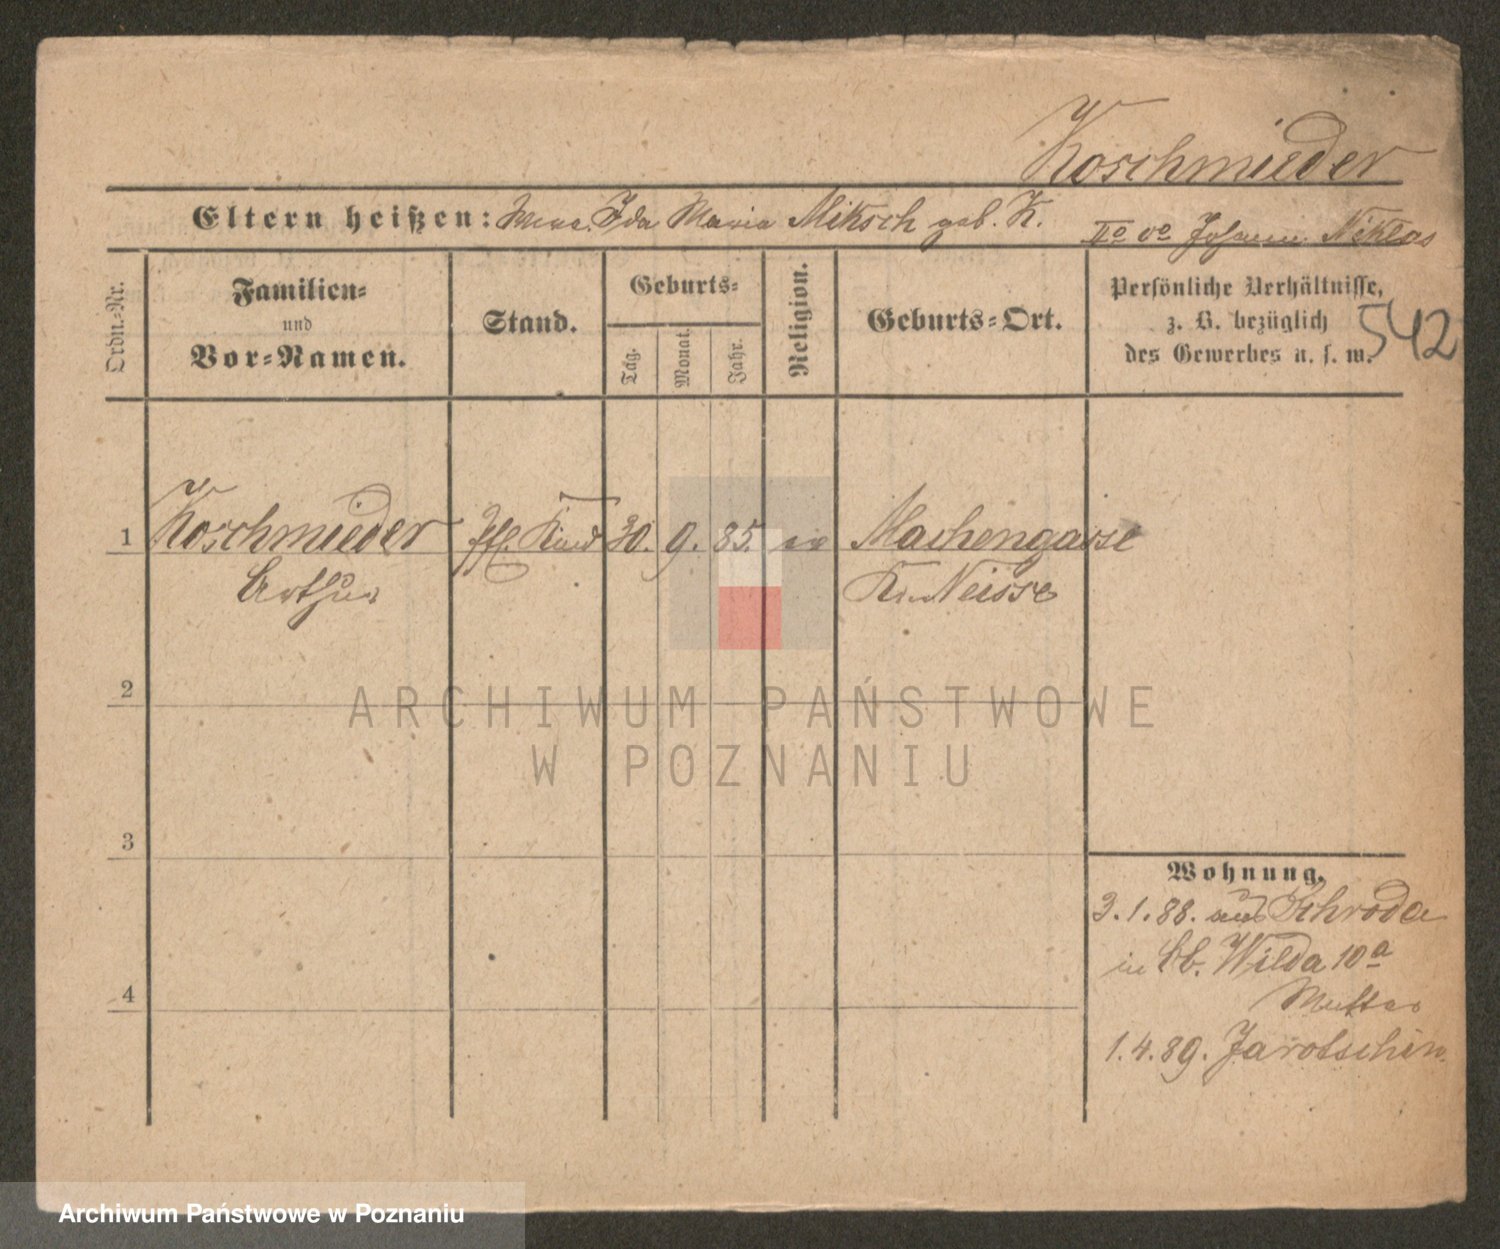 Koschmieder
Eltern heißen: Wwe. Ida Maria Miksch geb. K. II⁰ v⁰ Johann Niklas
Ordn.-Nr.
Familien-
und
Vor-Namen.
Stand.
Geburts-
Tag.
Monat.
Jahr.
Religion.
Geburts-Ort.
Persönliche Verhältnisse,
z. B. bezüglich
des Gewerbes u. s. w.
542
1 Koschmieder Kind 30. 9. 85. ev
Arthur Kr. Neisse
2
3
4
ARCHIWUM PAŃSTWOWE
W POZNANIU
Wohnung.
3.1.88. aus Schroda
in Ob. Wilda 10a
Mutter
1.4.89. Jarotschin
Archiwum Państwowe w Poznaniu